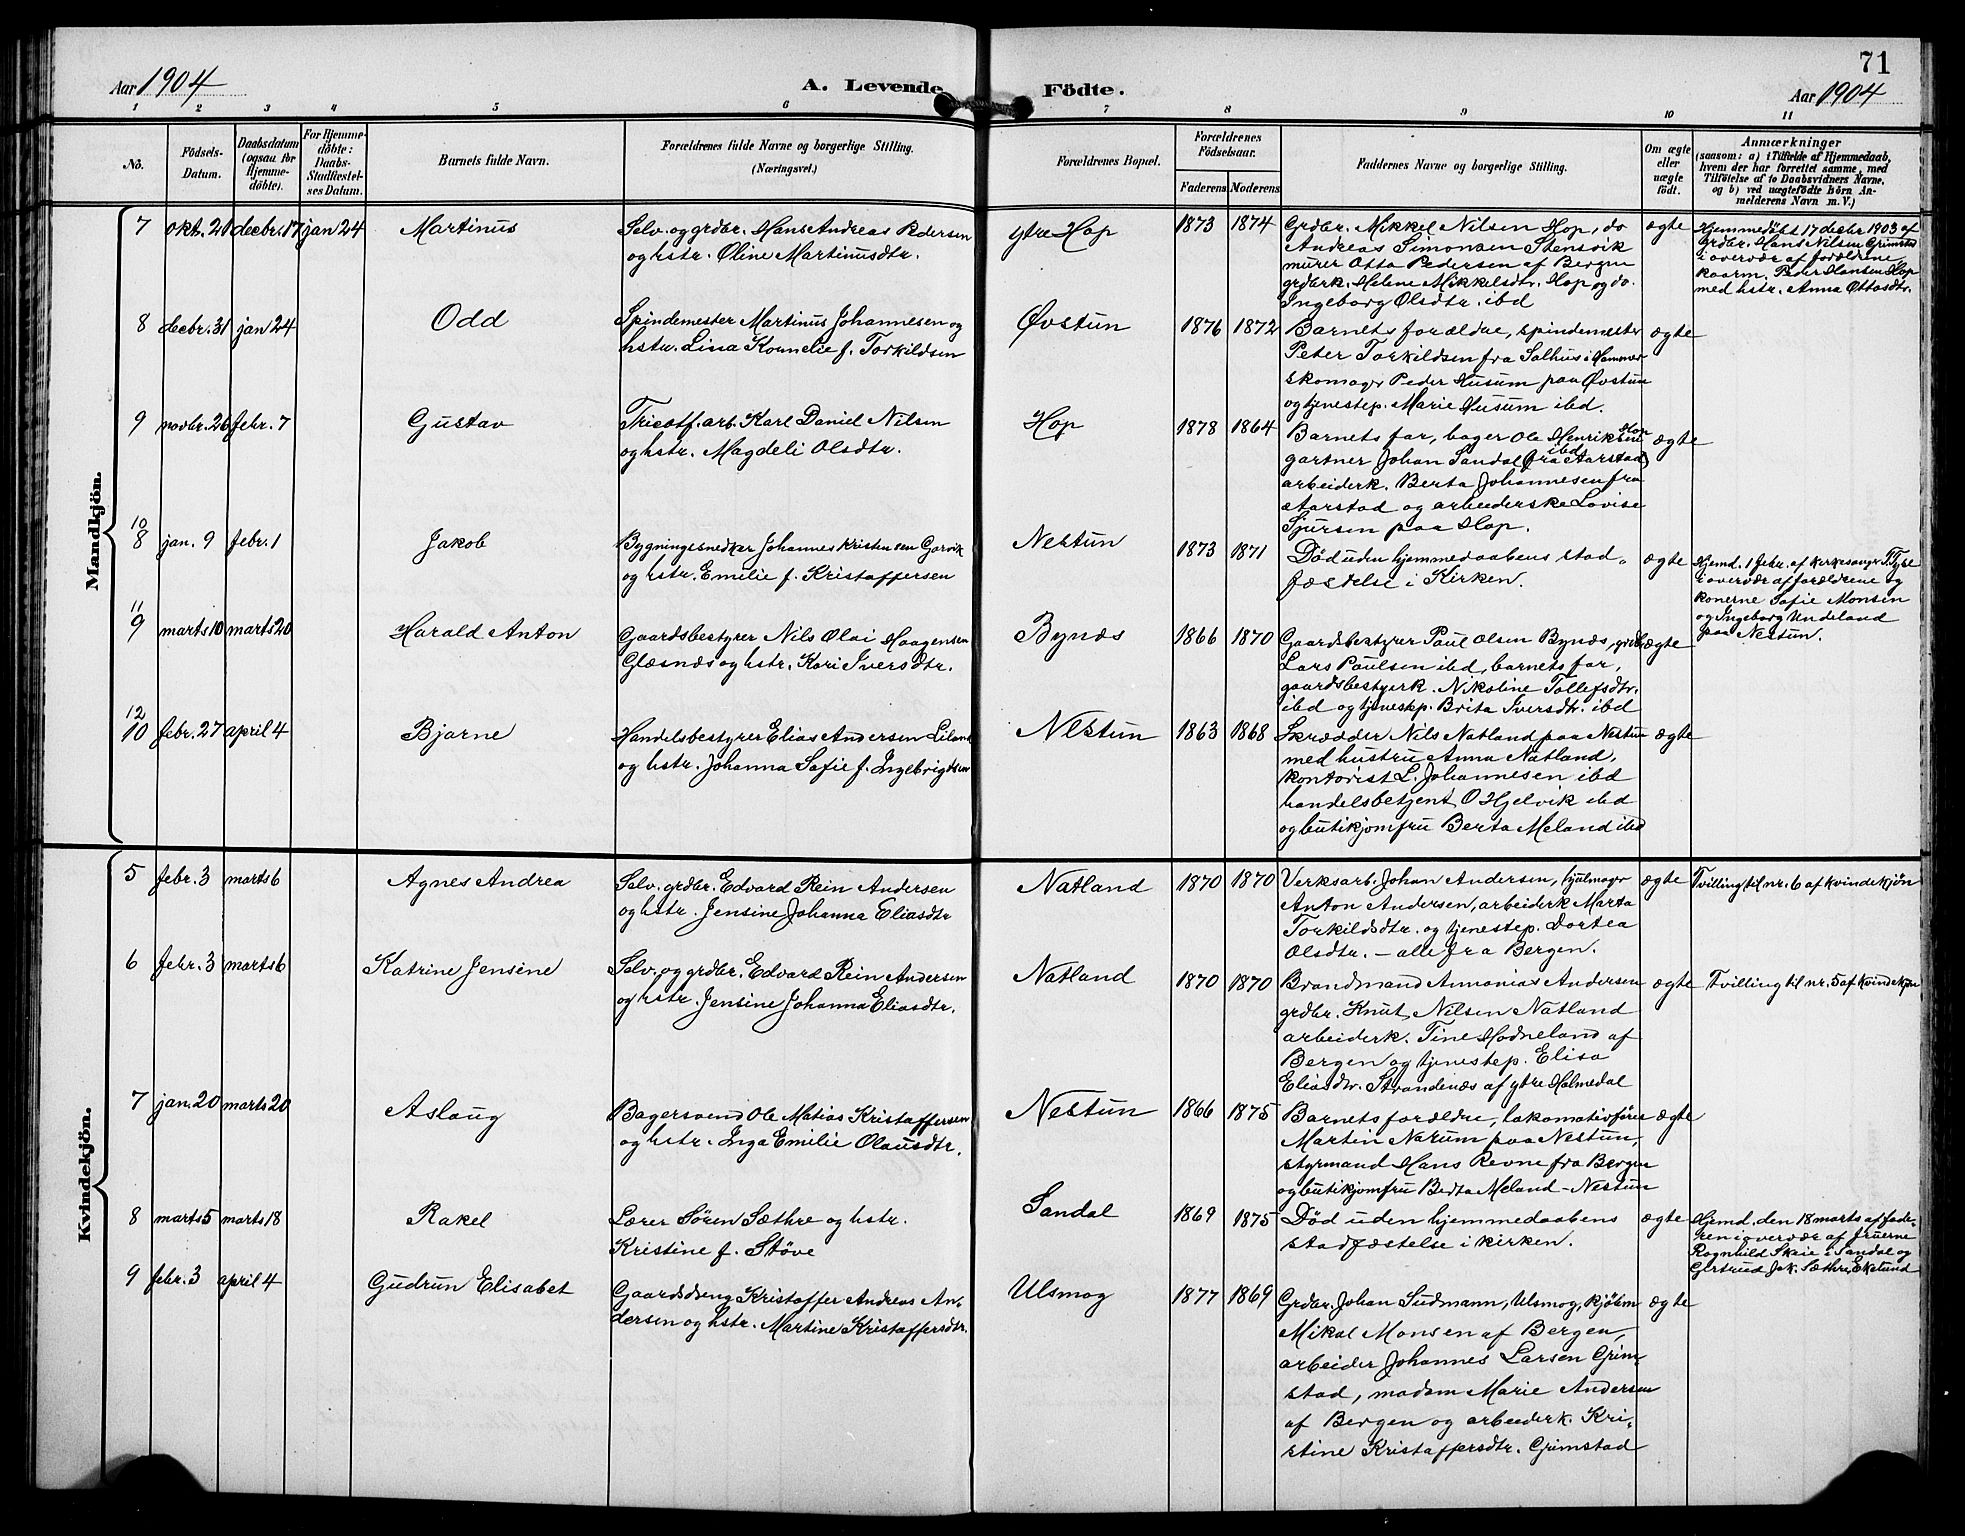 71
Aar 1904
A. Levende Födte.
Aar 1904
1 2 3 4 5 6 7 8 9 10 11
Nô.
Födsels-Datum.
Daabsdatum (ogsaa for Hjemmedöbte).
For Hjemmedöbte: Daabs-Stadfæstelses Datum.
Barnets fulde Navn.
Forældrenes fulde Navne og borgerlige Stilling. (Næringsvei.)
Forældrenes Bopæl.
Forældrenes Födselsaar.
Faderens Moderens
Faddernes Navne og borgerlige Stilling.
Om ægte eller uægte födt.
Anmærkninger
(saasom: a) i Tilfælde af Hjemmedaab, hvem der har forrettet samme, med Tilföielse af to Daabsvidners Navne, og b) ved uægtefödte Börn Anmelderens Navn m. V.)
Mandkjön.
7 okt. 21 decbr. 17 jan 24 Martinus
Selv. og grdbr. Hans Andreas Pedersen
og hstr. Oline Martinusdtr.
ytre Hop 1873 1874
Grdbr. Mikkel Nilsen Hop, do
Andreas Simonsen Stensvik
murer Otto Pedersen af Bergen
grdbrk. Helene Mikkelsdtr. Hop og do.
Ingeborg Olsdtr. ibd
ægte
Hjemmedöbt 17 decbr 1903 af
Grdbr. Hans Nilsen Grimstad
i overvær af forældrene
kaarm. Peder Hansen Hop
med hstr. Anna Ottosdtr.
8 decbr. 31 jan 24 Odd
Spindemester Martinus Johannesen og
hstr. Lina Kornelie f. Torkildsen
Øvstun 1876 1872
Barnets forældre, spindemester
Peter Torkildsen fra Salhus i Hammer
skomager Peder Husum paa Øvstun
og tjenestep. Marie Husum ibd.
ægte
9 novbr. 26 febr. 7 Gustav
Tricotf. arb. Karl Daniel Nilsen
og hstr. Magdeli Olsdtr.
Hop 1878 1864
Barnets far, bager Ole Henriksen Hop
gartner Johan Sandal ibd (fra Aarstad)
arbeiderk. Berta Johannesen fra
Aarstad og arbeiderske Lovise
Sjursen paa Hop.
ægte
10
8 jan. 9 febr. 1 Jakob
Bygningssnedker Johannes Kristensen Garvik
og hstr. Emilie f. Kristoffersen
Nestun 1873 1871
Død uden hjemmedaabens stad-
fæstelse i Kirken.
ægte
Hjemd. 1 febr. af kirkesanger T. Tyse
i overvær af forældrene og
konerne Sofie Monsen
og Ingeborg Undeland
paa Nestun.
11
9 marts 10 marts 20 Harald Anton
Gaardsbestyrer Nils Olai Haagensen
Glæsnæs og hstr. Kari Iversdtr.
Bynæs 1866 1870
Gaardsbestyrer Paul Olsen Bynæs, grdbr.
Lars Paulsen ibd, barnets far,
gaardsbestyerk. Nikoline Tollefsdtr.
ibd og tjenestep. Brita Iversdtr. ibd
ægte
12
10 febr. 27 april 4 Bjarne
Handelsbestyrer Elias Andersen Liland
og hstr. Johanna Sofie f. Ingebrigtsen
Nestun 1863 1868
Skrædder Nils Natland paa Nestun
med hustru Anna Natland,
kontorist L. Johannesen ibd
handelsbetjent O Hjelvik ibd
og butikjomfru Berta Meland ibd
ægte
Kvindekjön.
5 febr. 3 marts 6 Agnes Andrea
Selv. grdbr. Edvard Rein Andersen
og hstr. Jensine Johanna Eliasdtr
Natland 1870 1870
Verksarb. Johan Andersen, hjulmagr
Anton Andersen, arbeiderk Marta
Torkildsdtr. og tjenestep. Dortea
Olsdtr. - alle fra Bergen.
ægte
Tvilling til nr. 6 af kvindekjön
6 febr. 3 marts 6 Katrine Jensine
Selv. og grdbr. Edvard Rein Andersen
og hstr. Jensine Johanna Eliasdtr.
Natland 1870 1870
Brandmand Annanias Andersen
grdbr. Knut Nilsen Natland
arbeiderk. Tine Hodneland af
Bergen og tjenestep. Elisa
Eliasdtr. Strandenæs af ytre Holmedal
ægte
Tvilling til nr. 5 af kvindekjön
7 jan. 20 marts 20 Aslaug
Bagersvend Ole Matias Kristoffersen
og hstr. Inga Emilie Olausdtr.
Nestun 1866 1875
Barnets forældre, lokomotivfører
Martin Narum paa Nestun,
styrmand Hans Revne fra Bergen
og butikjomfru Berta Meland - Nestun
ægte
8 marts 5 marts 18 Rakel
Lærer Søren Sæthre og hstr.
Kristine f. Støve
Sandal 1869 1875
Død uden hjemmedaabens
stadfæstelse i kirken.
ægte
Hjemd. den 18 marts af fade-
ren i overvær af fruerne
Ragnhild Skeie i Sandal og
Gertrud Jak. Sæthre, Ekelund
9 febr. 3 april 4 Gudrun Elisabet
Gaardsdreng Kristoffer Andreas An-
dersen og hstr. Martine Kristoffersdtr.
Ulsmog 1877 1869
Grdbr. Johan Sudmann, Ulsmog, kjøbm
Mikal Monsen af Bergen,
arbeider Johannes Larsen Grim-
stad, madam Marie Andersen
af Bergen og arbeiderk. Kri-
stine Kristoffersdtr. Grimstad
ægte